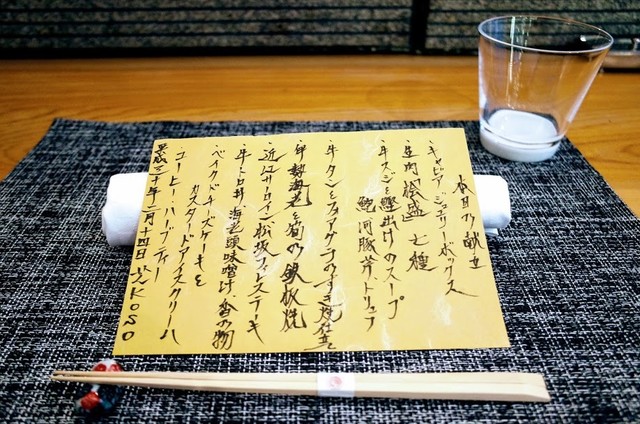 本日の献立
・キャビア ジュエリーボックス
・生肉 絵盛 七種
・牛スジと鰹出汁のスープ
鮑 河豚 芹 トリュフ
・牛タンとフォアグラのすき焼仕立
・伊勢海老と旬の鉄板焼
・近江サーロイン 松坂フィレステーキ
・牛トロ丼 海老頭味噌汁 香の物
・ベイクドチーズケーキと
カスタードアイスクリーム
・コーヒー・ハーブティー
平成三十年二月十四日 KOSO